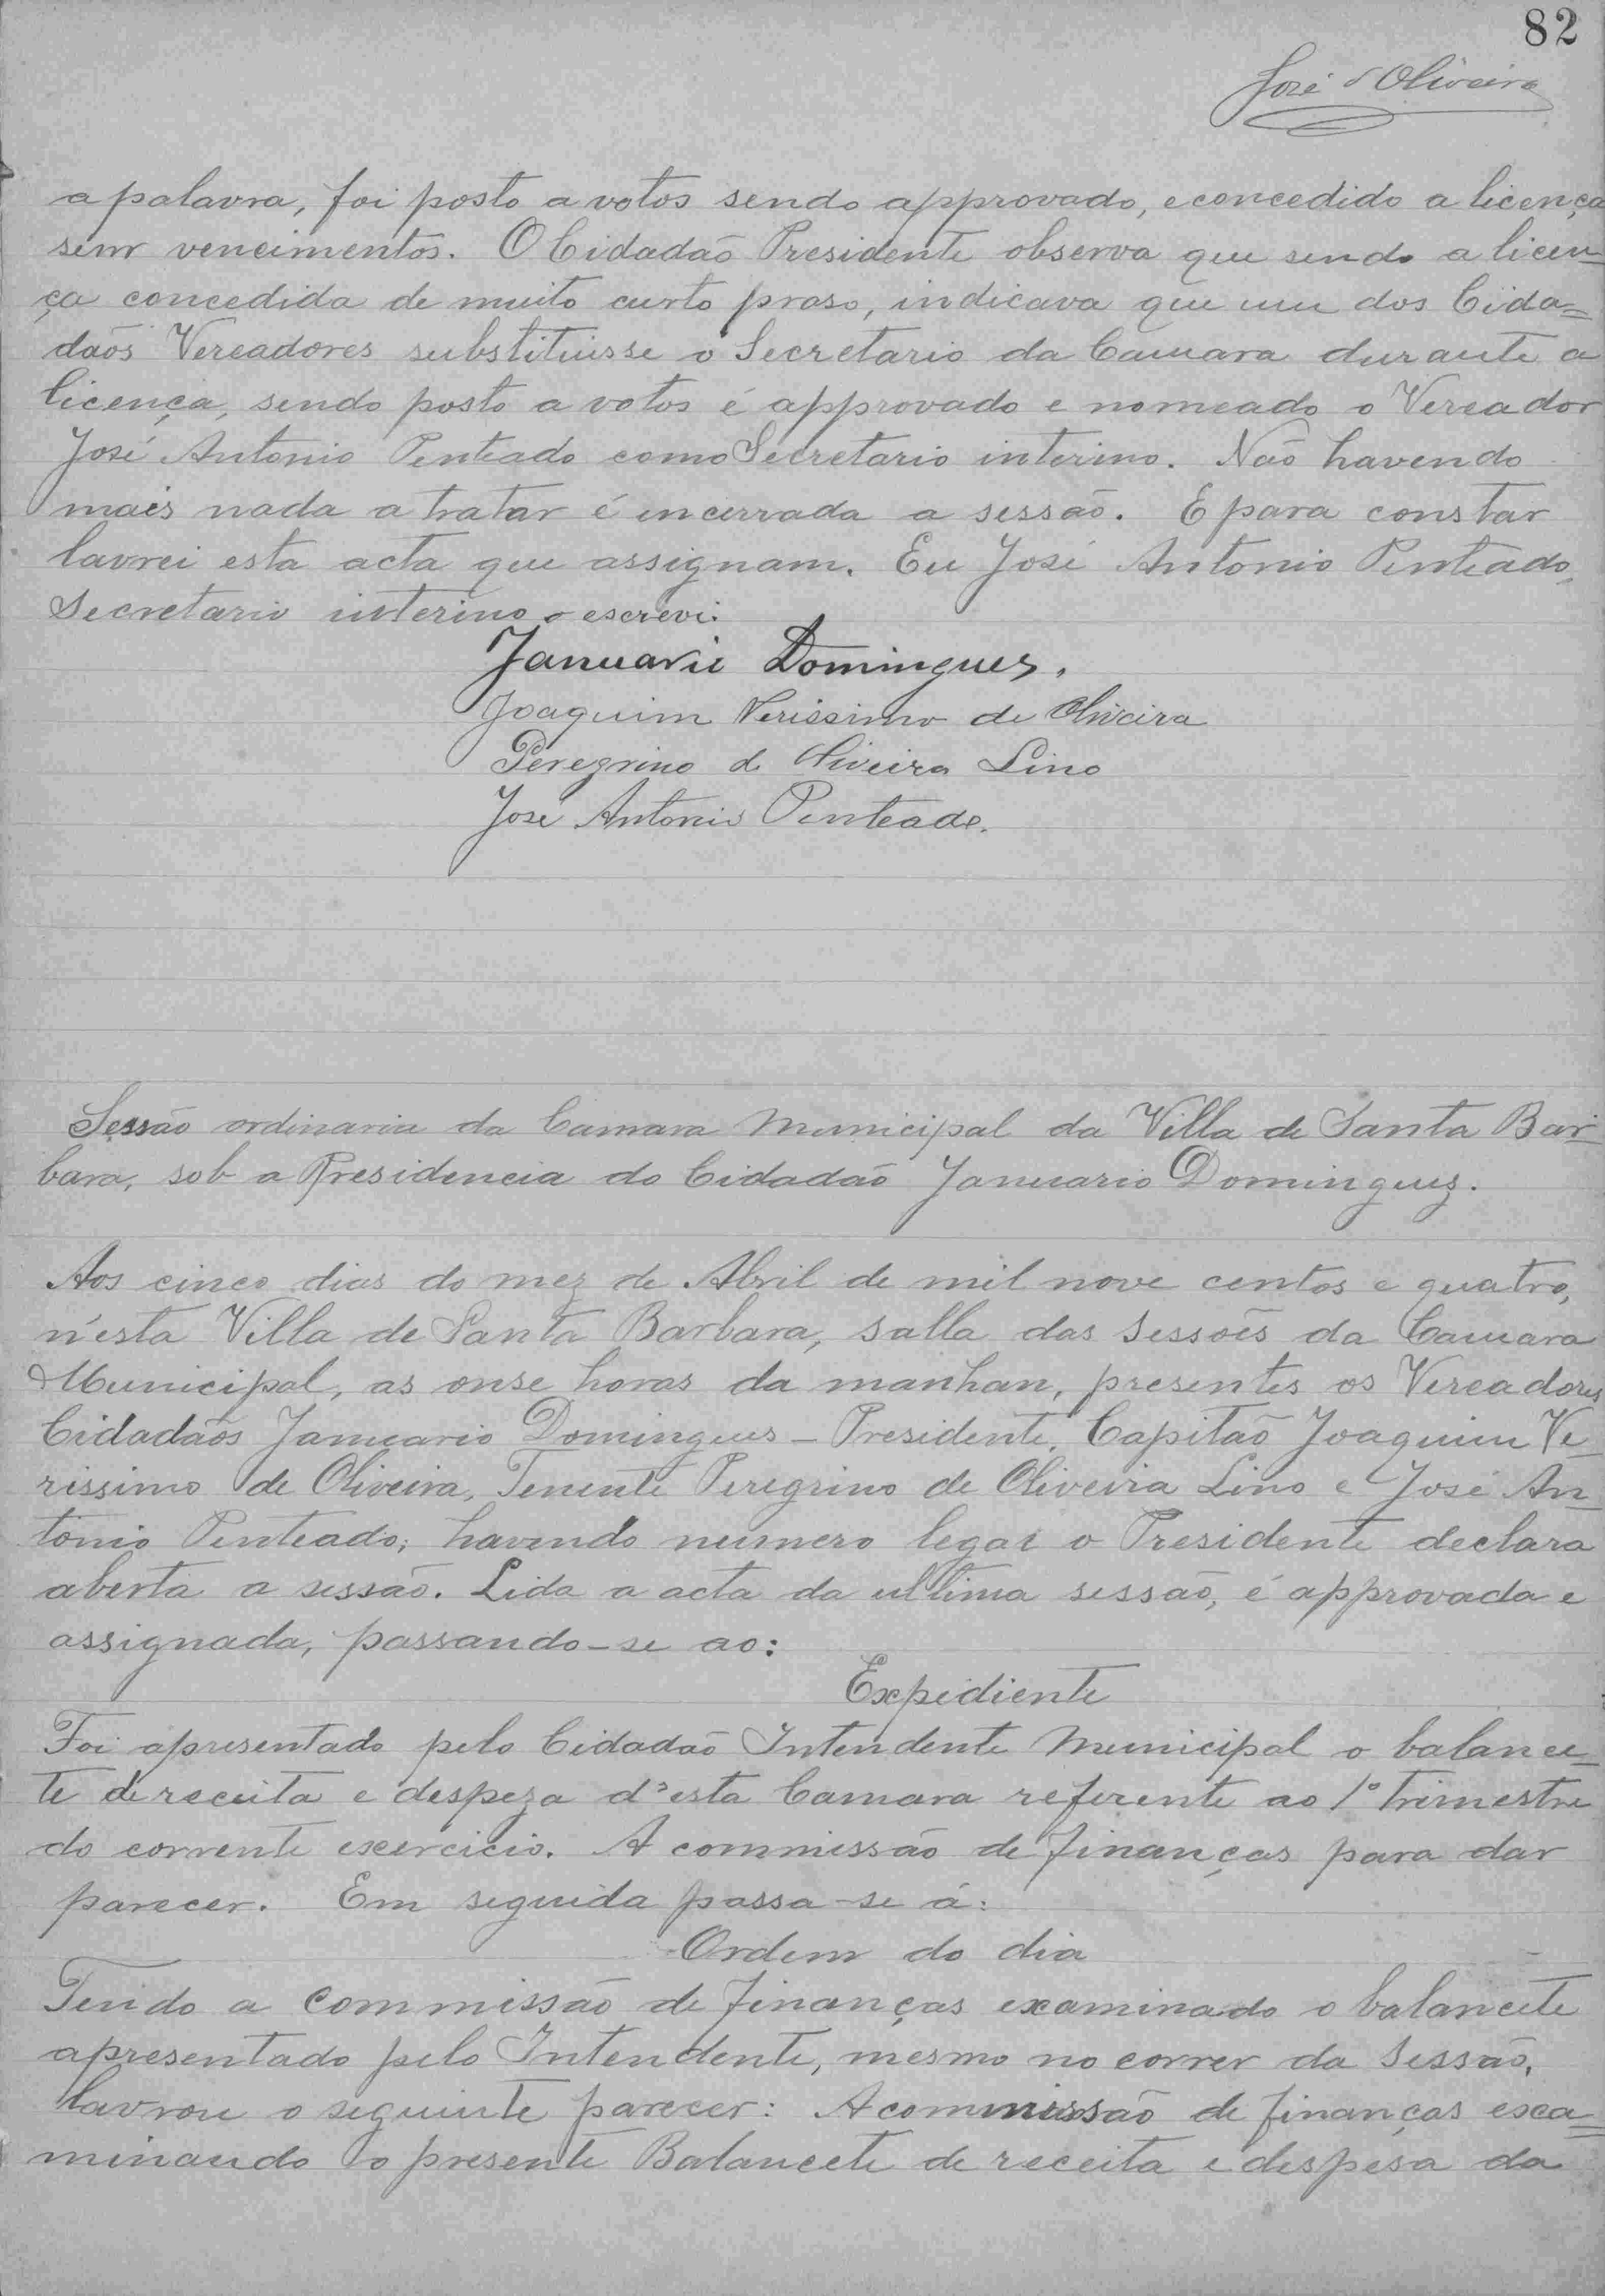 82
José d'Oliveira
a palavra, foi posto a votos sendo approvado, e concedido a licença
sem vencimentos. O Cidadão Presidente observa que sendo a licen-
ça concedida de muito curto praso, indicava que um dos Cida=
dãos Vereadores substituisse o Secretario da Camara durante a
licença, sendo posto a votos é approvado e nomeado o Vereador
José Antonio Penteado como Secretario interino. Não havendo
mais nada a tratar é encerrada a sessão. E para constar
lavrei esta acta que assignam. Eu José Antonio Penteado,
Secretario interino o escrevi.
Januario Domingues.
Joaquim Verissimo de Oliveira
Peregrino d Oliveira Lino
José Antonio Penteado.
Sessão ordinaria da Camara Municipal da Villa de Santa Bar-
bara, sob a Presidencia do Cidadão Januario Domingues.
Aos cinco dias do mez de Abril de mil nove centos e quatro,
n'esta Villa de Santa Barbara, salla das Sessões da Camara
Municipal, as onse horas da manhan, presentes os Vereadores
Cidadãos Januario Domingues - Presidente, Capitão Joaquim Ve-
rissimo de Oliveira, Tenente Peregrino de Oliveira Lino e José An-
tonio Penteado; havendo numero legal o Presidente declara
aberta a sessão. Lida a acta da ultima sessão, é approvada e
assignada, passando-se ao:
Expediente
Foi apresentado pelo Cidadão Intendente Municipal o balance-
te de receita e despeza d'esta Camara referente ao 1º trimestre
do corrente exercicio. A commissão de finanças para dar
parecer. Em seguida passa-se á:
Ordem do dia
Tendo a commissão de finanças examinado o balancete
apresentado pelo Intendente, mesmo no correr da Sessão,
lavrou o seguinte parecer: A commissão de finanças exa=
minando o presente Balancete de receita e despesa da